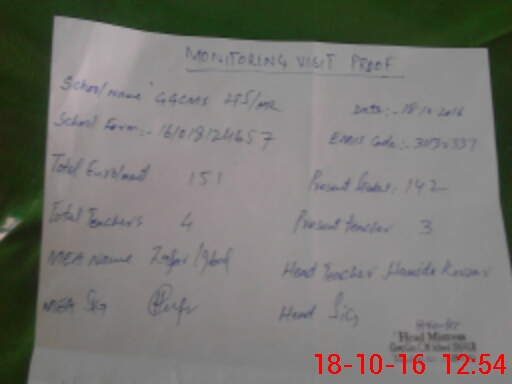 MONITORING VISIT PROOF
School name GGCMS 275/HR Date:- 18.10.2016
School Form:- 16101812 EMIS Code:-
Total Enrolment 151 Present Student: 142
Total Teachers 4 Present teacher 3
MEA Name Zafar Iqbal Head Teacher Hamida Kausar
MEA Sig Head Sig
Head Mistress
18-10-16 12:54